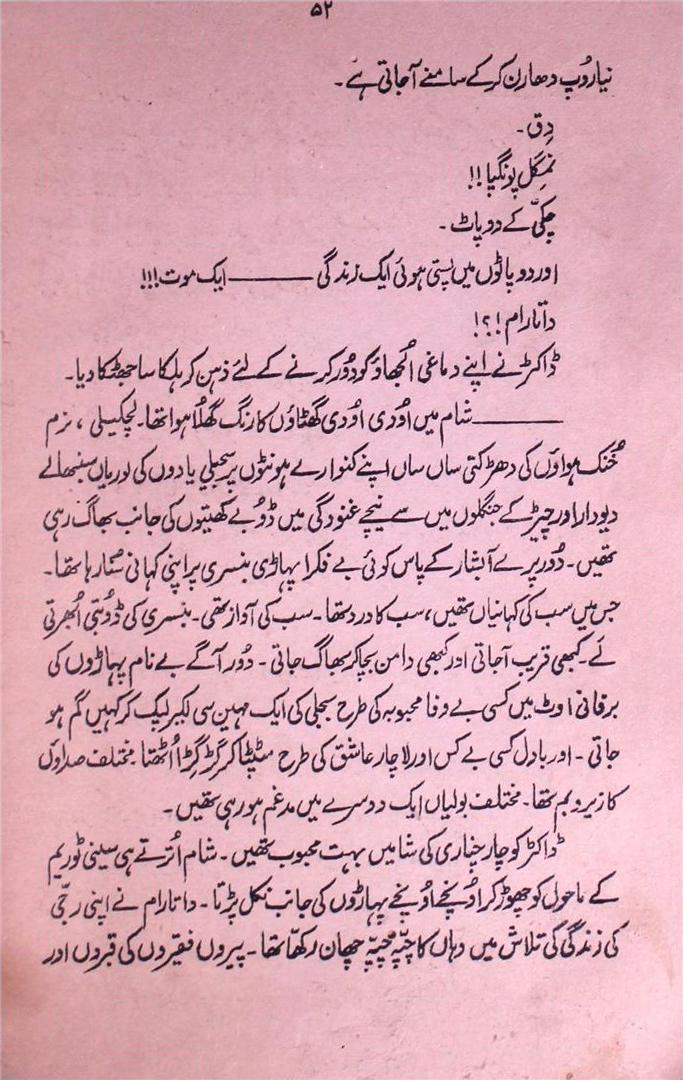 ۵۲
نیا رُوپ دھارن کر کے سامنے آ جاتی ہے۔
دِق۔
نمگل پونگپا!!
چکّی کے دو پاٹ۔
اور دو پاٹوں میں پستی ہوئی ایک زندگی ——— ایک موت!!!
داتا رام!؟!
ڈاکٹر نے اپنے دماغی اُلجھاؤ کو دُور کرنے کے لئے ذہن کو ہلکا سا جھٹکا دیا۔
——— شام میں اُودی اُودی گھٹاؤں کا رنگ گھُلا ہوا تھا۔ لچکیلی، نرم
خُنک ہواؤں کی دھڑکتی ساں ساں اپنے کنوارے ہونٹوں پر سجیلی یادوں کی لوریاں سنبھالے
دیودار اور چیڑ کے جنگلوں میں سے نیچے غنودگی میں ڈوبے کھیتوں کی جانب بھاگ رہی
تھیں۔ دُور پرے آبشار کے پاس کوئی بے فکرا پہاڑی بنسری پر اپنی کہانی سُنا رہا تھا۔
جس میں سب کی کہانیاں تھیں، سب کا درد تھا۔ سب کی آواز تھی۔ بنسری کی ڈوبتی اُبھرتی
لَے۔ کبھی قریب آ جاتی اور کبھی دامن بچا کر بھاگ جاتی۔ دُور آگے بے نام پہاڑوں کی
برفانی اوٹ میں کسی بے وفا محبوبہ کی طرح بجلی کی ایک مہین سی لکیر لپک کر کہیں گم ہو
جاتی۔ اور بادل کسی بے کس اور لاچار عاشق کی طرح سٹپٹا کر گِڑگِڑا اُٹھتا مختلف صداؤں
کا زیر و بم تھا۔ مختلف بولیاں ایک دوسرے میں مدغم ہو رہی تھیں۔
ڈاکٹر کو چار خباری کی شامیں بہت محبوب تھیں۔ شام اُترتے ہی سینی ٹوریم
کے ماحول کو چھوڑ کر اُونچے اُونچے پہاڑوں کی جانب نکل پڑتا۔ داتا رام نے اپنی رجّی
کی زندگی کی تلاش میں وہاں کا چپّہ چپّہ چھان رکھا تھا۔ پیروں فقیروں کی قبروں اور